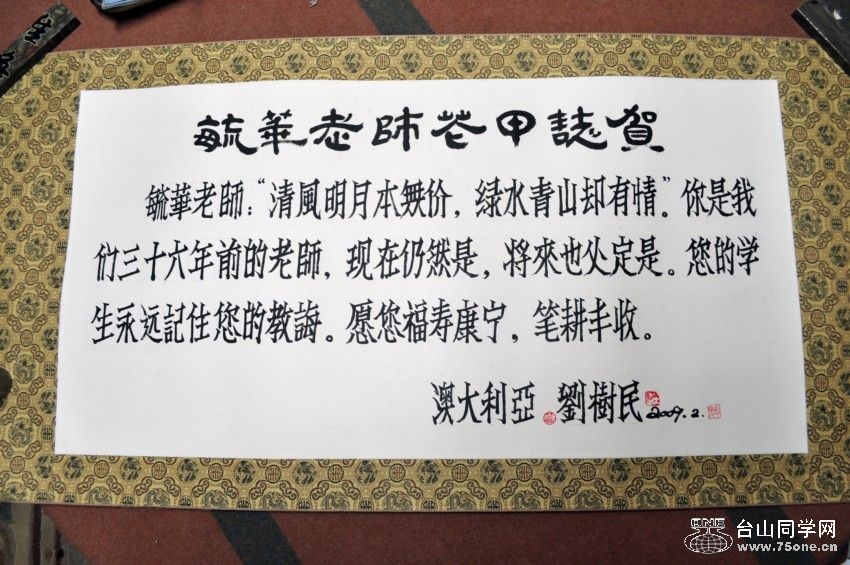 毓華老師花甲誌賀
毓華老師：“清風明月本無价，绿水青山却有情”。你是我
们三十六年前的老師，现在仍然是，将來也必定是。您的学
生永远記住您的教誨。愿您福寿康宁，笔耕丰收。
澳大利亞 劉樹民 2009.2.
ONE 台山同学网
www.75one.cn